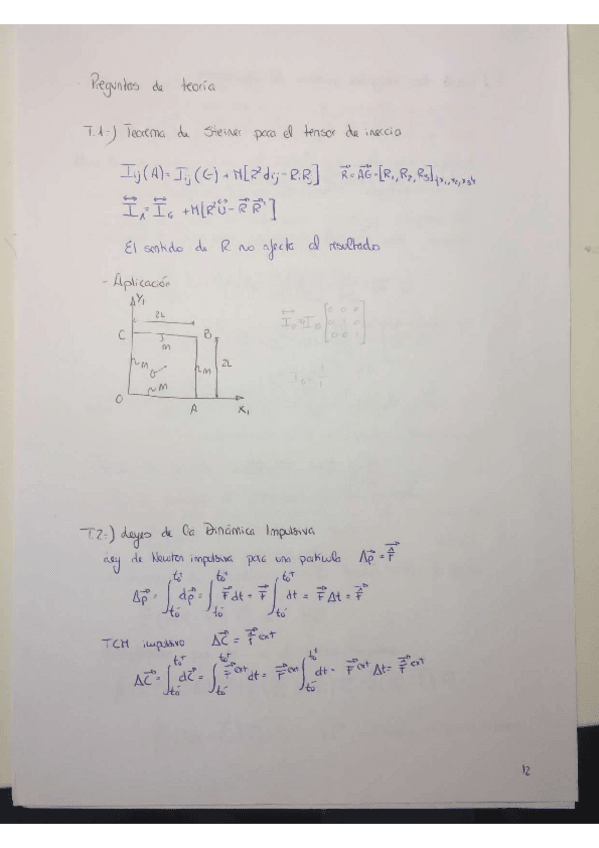 Preguntas de teoría
T.1-) Teorema de Steiner para el tensor de inercia
Iij(A) = Iij(G) + M[R²dij - RiRj]   R⃗ = AG⃗ = [R1, R2, R3]{x1,x2,x3}
I⃡A = I⃡G + M[R²U⃡ - R⃗ R⃗]
El sentido de R no afecta al resultado
- Aplicación
Y1
2L
C
B
M
M
G
M
2L
M
O
A
X1
0 0 0
0 0
0 0 1
T.2-) Leyes de la Dinámica Impulsiva
Ley de Newton impulsiva para una partícula   Δp⃗ = F̂⃗
Δp⃗ = ∫to⁻^to⁺ dp⃗ = ∫to⁻^to⁺ F⃗ dt = F⃗ ∫to⁻^to⁺ dt = F⃗ Δt = F̂⃗
TCM impulsivo   ΔC⃗ = F̂⃗ ext
ΔC⃗ = ∫to⁻^to⁺ dC⃗ = ∫to⁻^to⁺ F⃗ ext dt = F⃗ ext ∫to⁻^to⁺ dt = F⃗ ext Δt = F̂⃗ ext
12